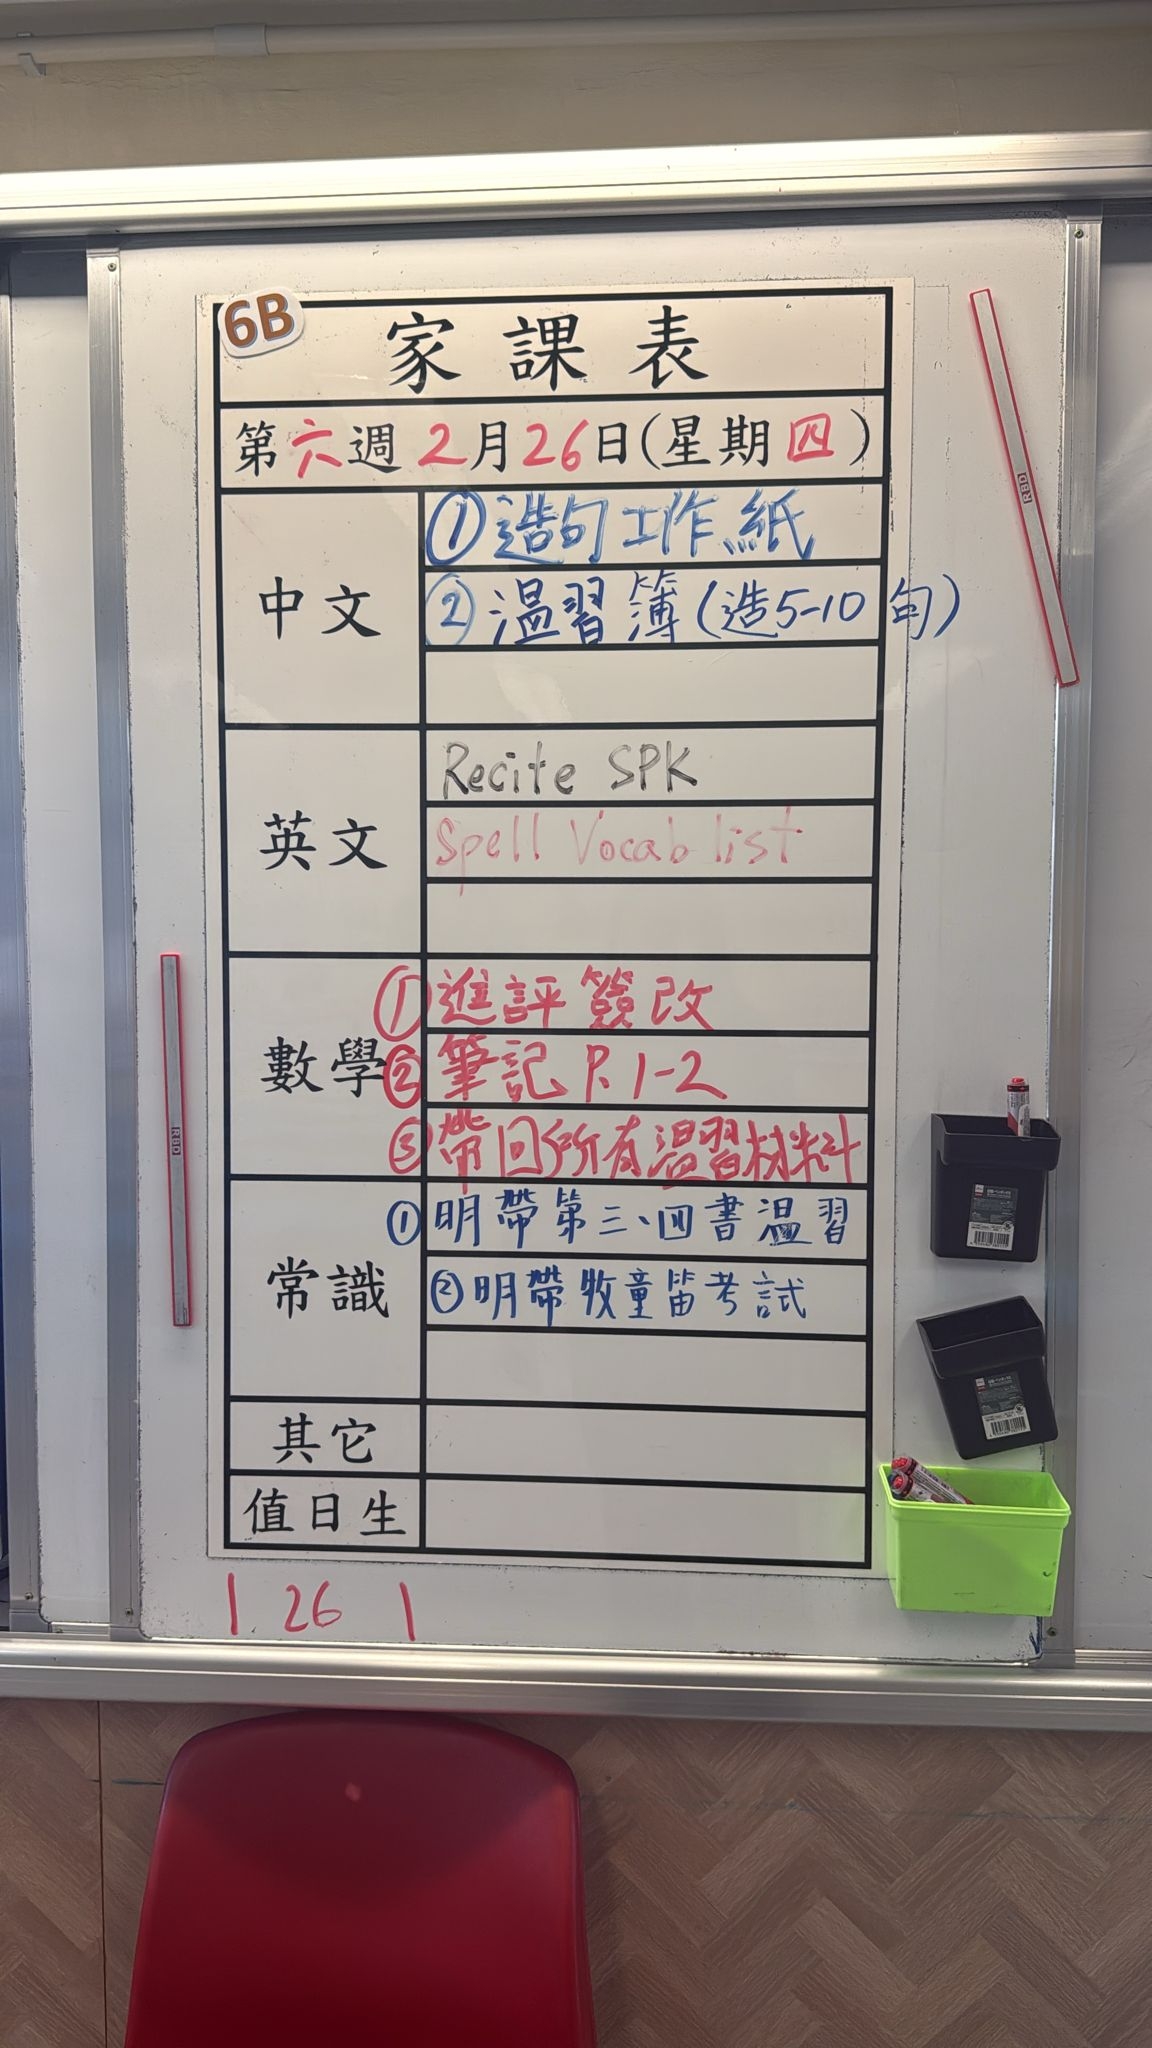 6B
家課表
第六週2月26日(星期四)
中文
①造句工作紙
②溫習簿(造5-10句)
英文
Recite SPK
Spell Vocab list
數學
①進評簽改
②筆記 P.1-2
③帶回所有溫習材料
常識
①明帶第三、四書溫習
②明帶牧童笛考試
其它
值日生
1 26 1
RBD
RBD